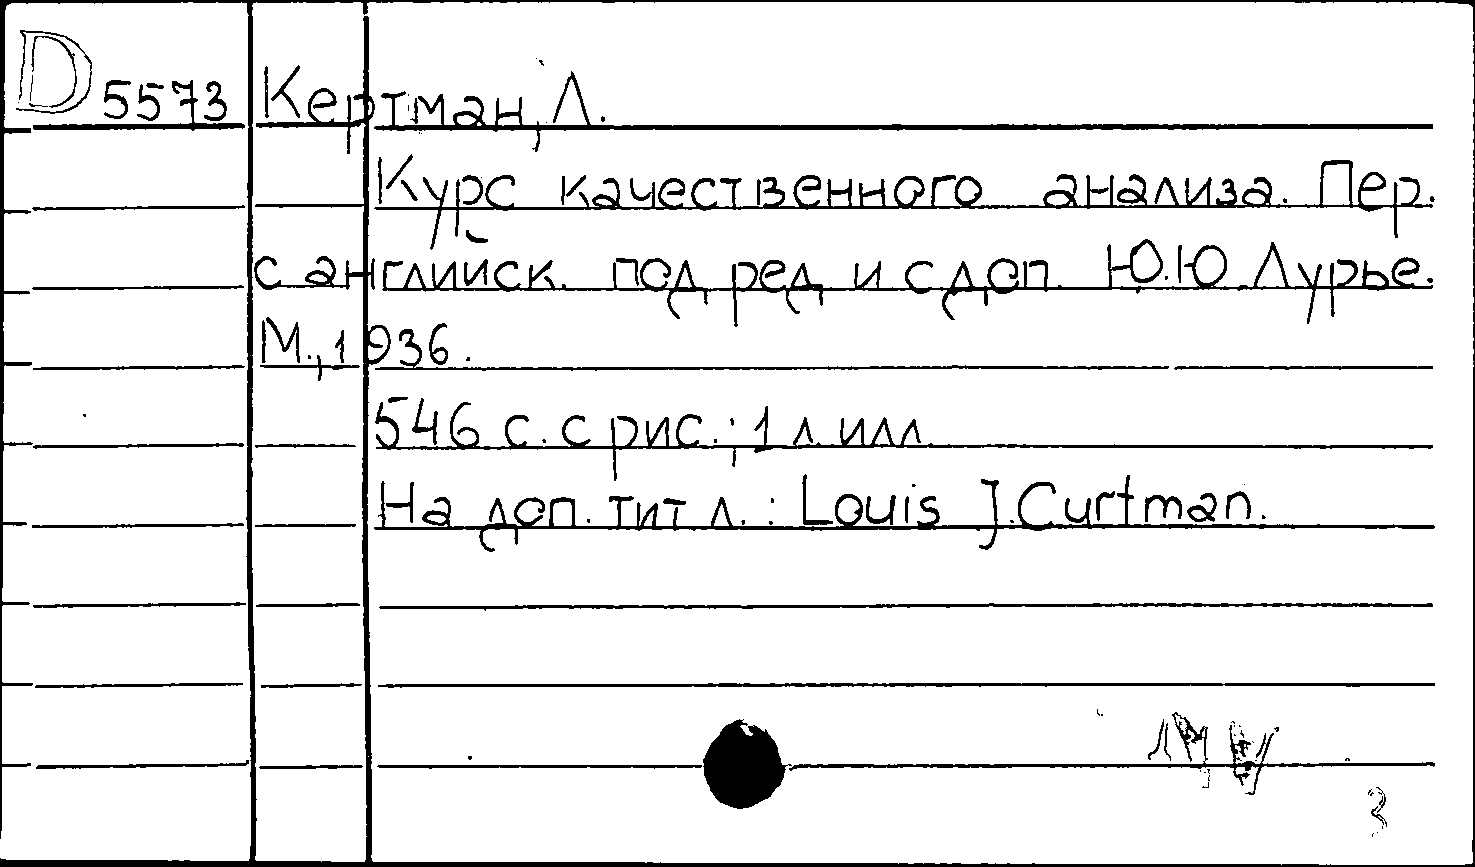 D 5573 Кертман, Л.
Курс качественного анализа. Пер.
с английск. под ред и с доп. Ю.Ю. Лурье.
М., 1936.
546 с. с рис.; 1 л. илл.
На доп. тит л. : Louis J. Curtman.
3